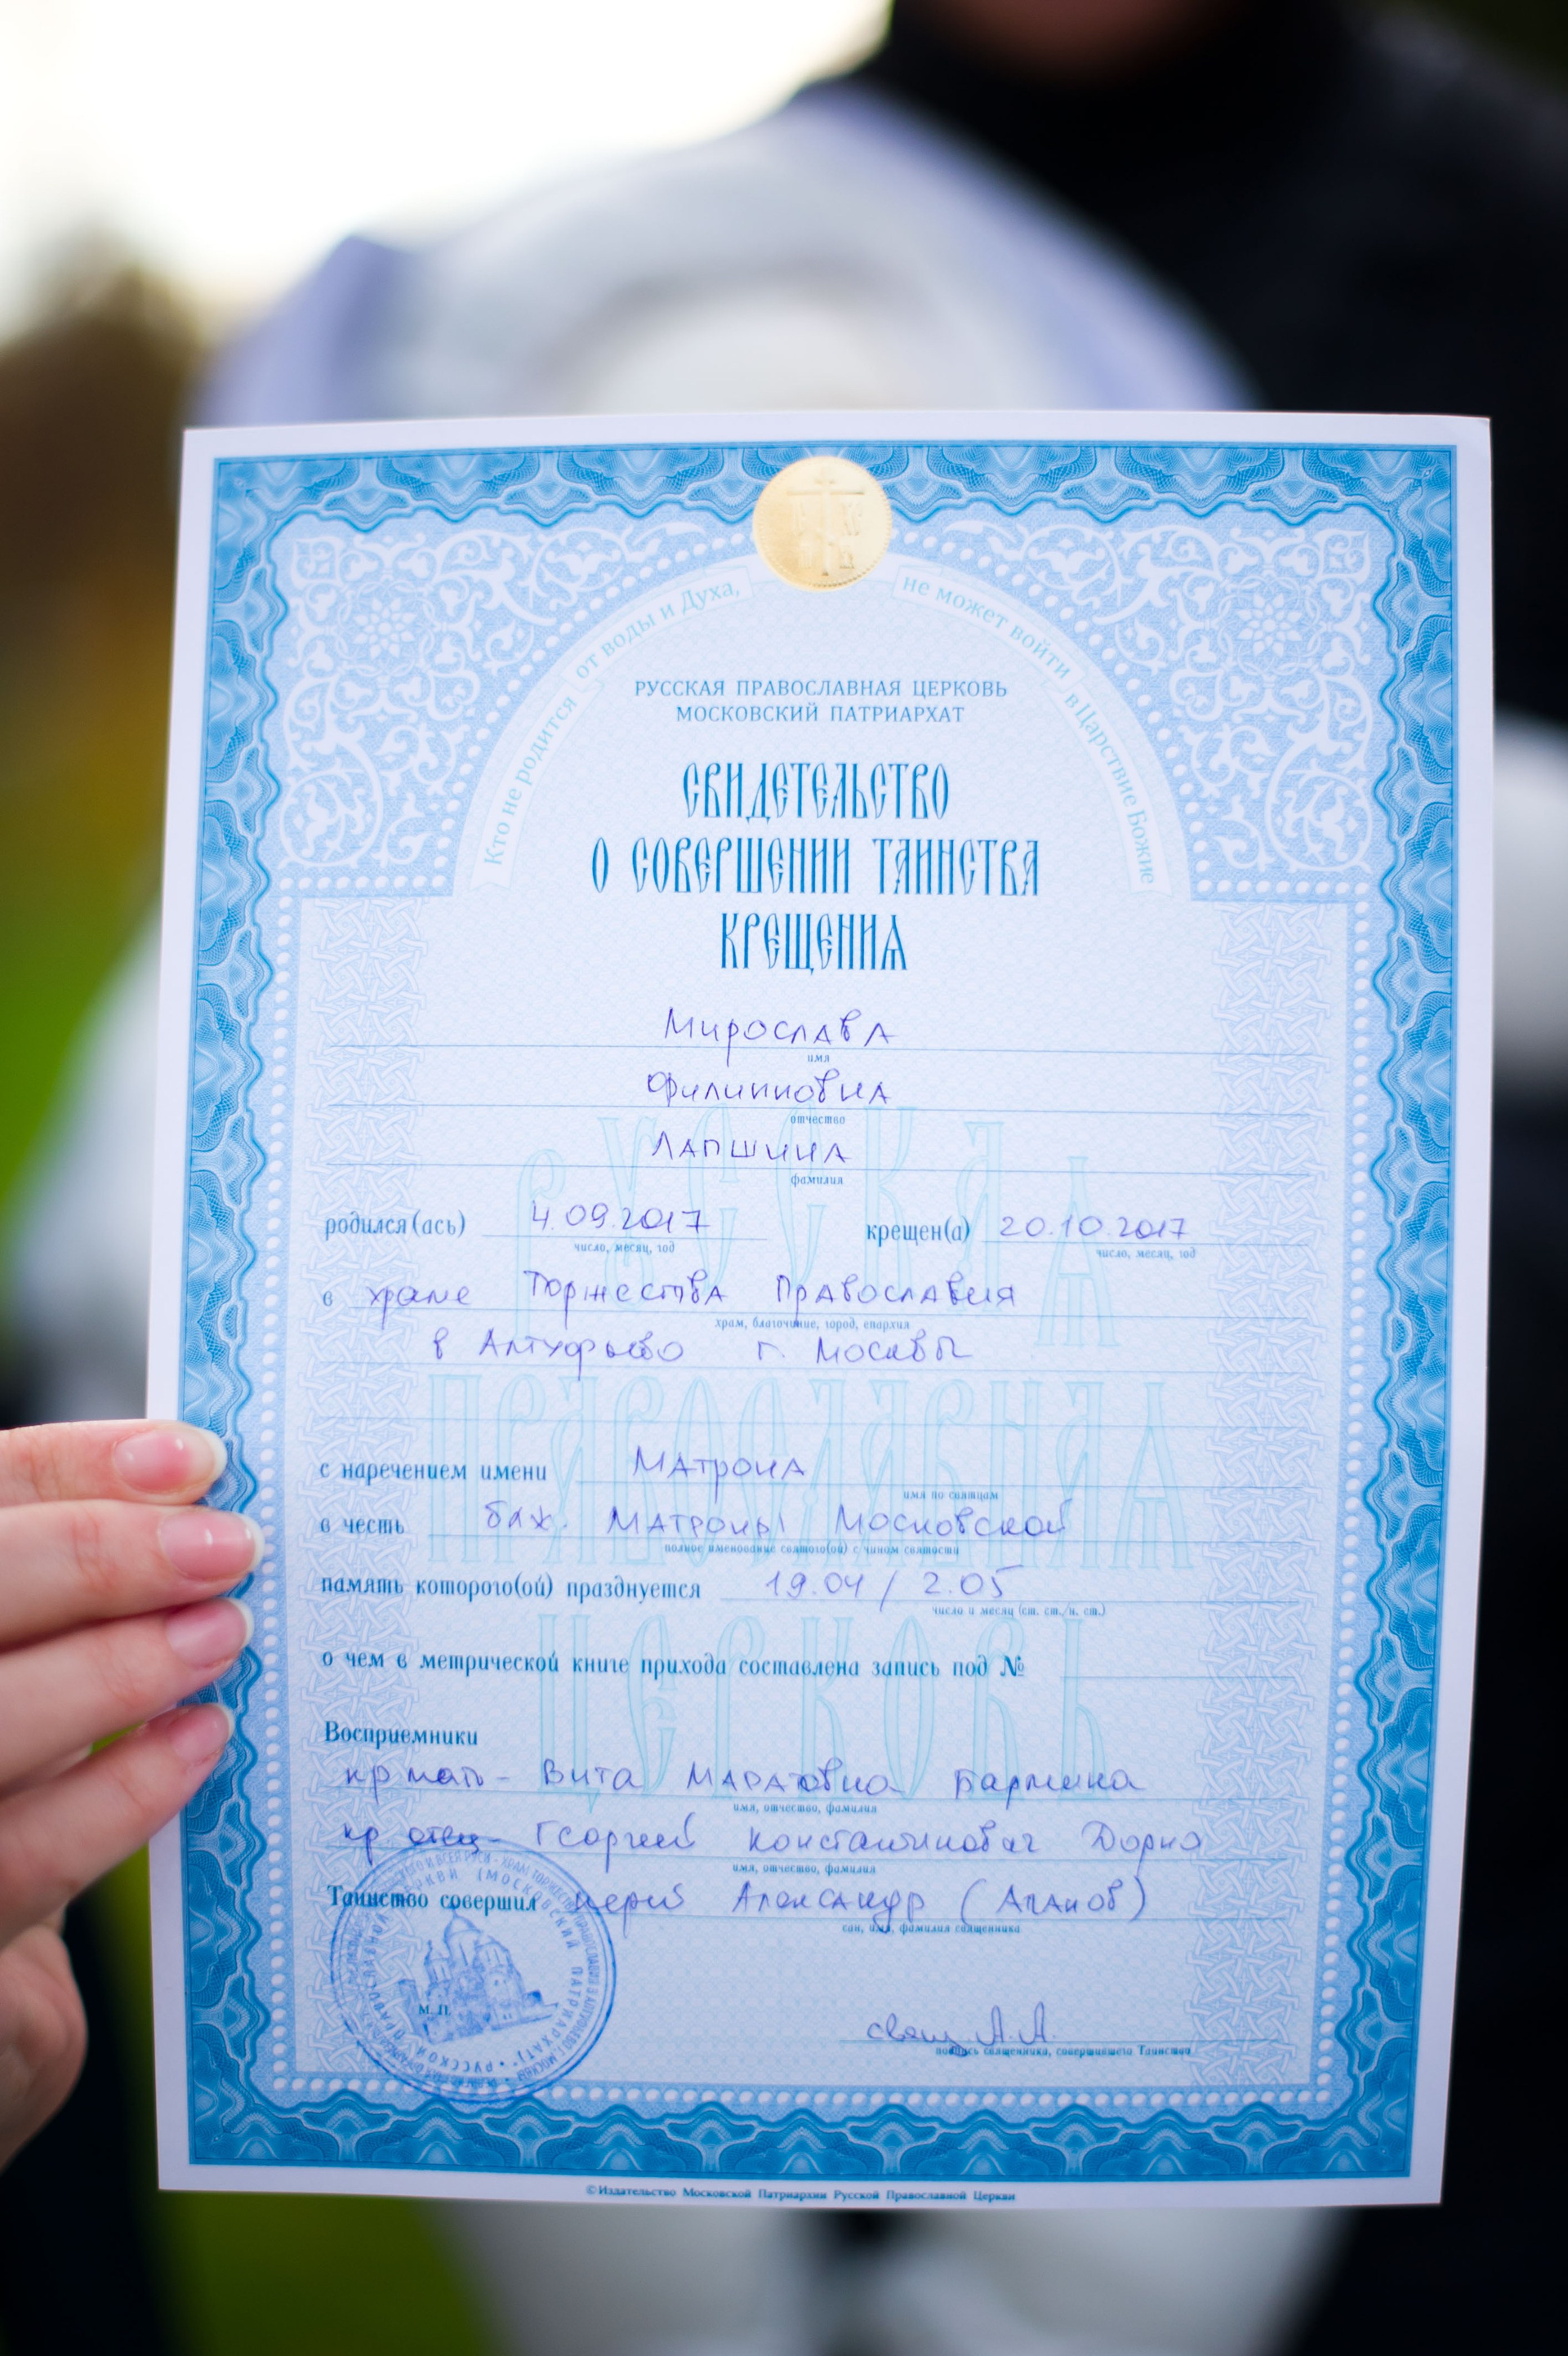 Кто не родится от воды и Духа, не может войти в Царствие Божие
РУССКАЯ ПРАВОСЛАВНАЯ ЦЕРКОВЬ
МОСКОВСКИЙ ПАТРИАРХАТ
СВИДЕТЕЛЬСТВО
О СОВЕРШЕНИИ ТАИНСТВА
КРЕЩЕНИЯ
Мирослава
имя
Филипповна
отчество
Лапшина
фамилия
родился(ась) 4.09.2017 крещен(а) 20.10.2017
число, месяц, год число, месяц, год
в храме Торжества Православия
храм, благочиние, город, епархия
в Алтуфьево г. Москвы
с наречением имени Матрона
имя по святцам
в честь блж. Матроны Московской
полное именование святого(ой) с чином святости
память которого(ой) празднуется 19.04 / 2.05
число и месяц (ст. ст./н. ст.)
о чем в метрической книге прихода составлена запись под №
Восприемники
кр мать - Вита Маратовна
имя, отчество, фамилия
кр отец - Георгий Константинович
имя, отчество, фамилия
Таинство совершил иерей Александр
сан, имя, фамилия священника
М. П.
свящ. А.А.
подпись священника, совершившего Таинство
РУССКАЯ
ПРАВОСЛАВНАЯ
ЦЕРКОВЬ
©Издательство Московской Патриархии Русской Православной Церкви